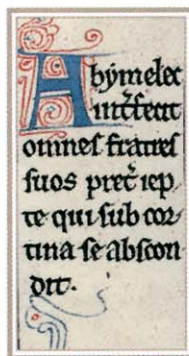 Abymelec
int̾fecit
omnes fratres
suos pret̾ iep
te qui sub cor
tina se abscon
dit.